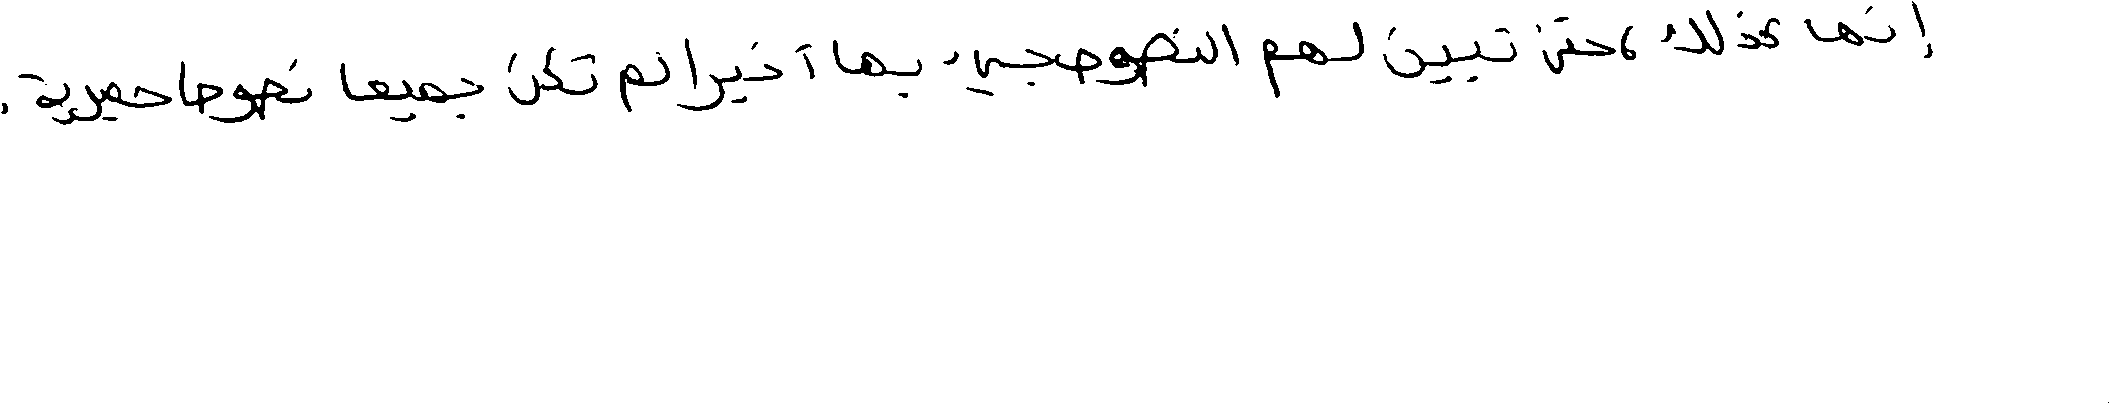 إنها كذلك، حتى تبين لهم النصوص جيء بها أخيرا لم تكن جميعا نصوصا حميرية.